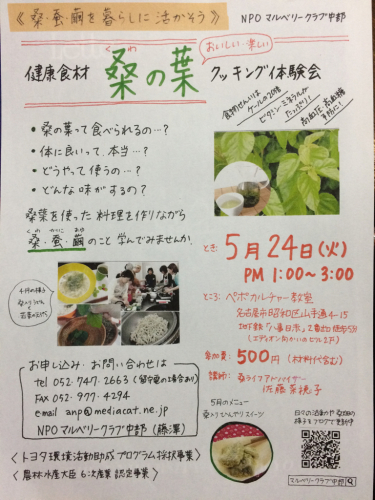 《桑・蚕・繭を暮らしに活かそう》
NPO マルベリークラブ中部
おいしい・楽しい
くわ
健康食材 桑の葉 クッキング体験会
食物せんいは
ケールの20倍
ビタミン・ミネラルが
たっぷり!
高血圧、高血糖
予防に!
・桑の葉って食べられるの…?
・体に良いって、本当…?
・どうやって使うの…?
・どんな味がするの?
桑葉を使った料理を作りながら
くわ かいこ まゆ
桑・蚕・繭のこと学んでみませんか
4月の様子
とき: 5月24日(火)
PM 1:00~3:00
ところ: ペポカルチャー教室
名古屋市昭和区山手通4-15
地下鉄「八事日赤」2番出口徒歩5分
(エディオン向かいのビル2F)
参加費: 500円(材料代含む)
講師: 桑ライフアドバイザー
佐藤菜桃子
お申し込み・お問い合わせは
tel 052.747.2663 (留守電の場合あり)
FAX 052.977-4294
email anp@mediacat.ne.jp
NPOマルベリークラブ中部(藤澤)
5月のメニュー
日々の活動や桑畑の
様子をブログで更新中
〈トヨタ環境活動助成プログラム採択事業〉
〈農林水産大臣 6次産業認定事業〉
マルベリークラブ中部